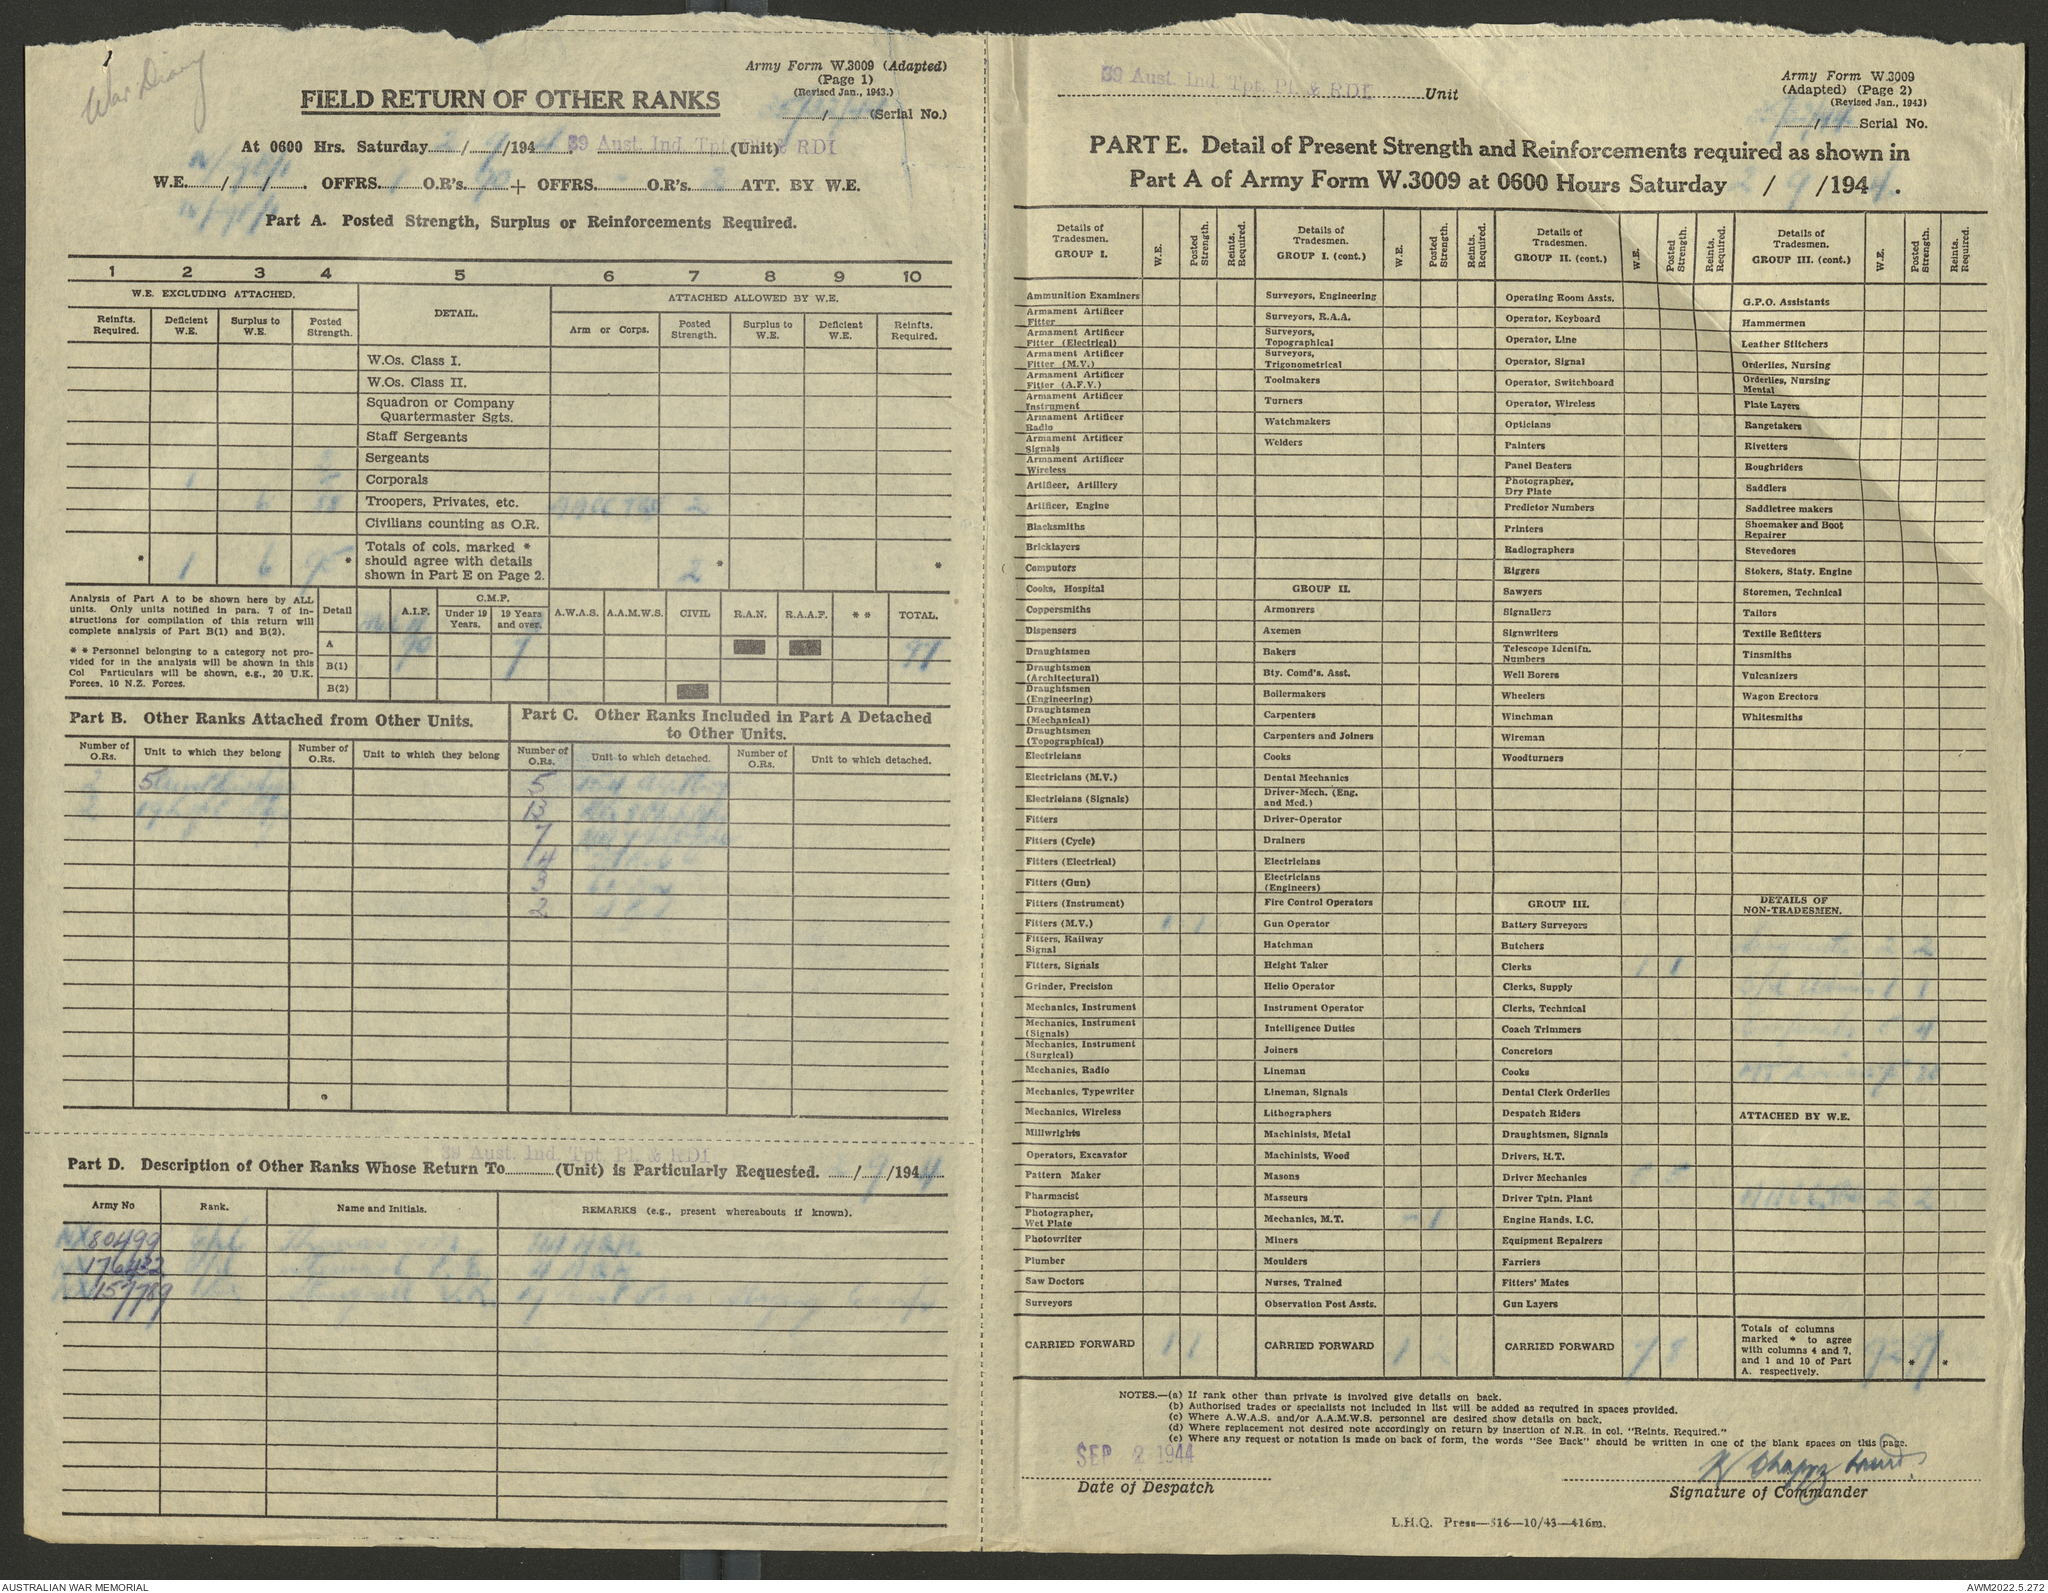 War Diary
Army Form W.3009 (Adapted)
(Page 1)
(Revised Jan., 1943.)
FIELD RETURN OF OTHER RANKS
/ (Serial No.)
At 0600 Hrs. Saturday 2 / 9 /1944. 39 Aust. Ind. Tpt (Unit) & RDI
W.E. / / . OFFRS. 1 O.R's. 90 + OFFRS. - O.R's. 2 ATT. BY W.E.
Part A. Posted Strength, Surplus or Reinforcements Required.
1 2 3 4 5 6 7 8 9 10
W.E. EXCLUDING ATTACHED. DETAIL. ATTACHED ALLOWED BY W.E.
Reinfts. Required. Deficient W.E. Surplus to W.E. Posted Strength. Arm or Corps. Posted Strength. Surplus to W.E. Deficient W.E. Reinfts. Required.
W.Os. Class I.
W.Os. Class II.
Squadron or Company Quartermaster Sgts.
Staff Sergeants
Sergeants
1 Corporals
6 88 Troopers, Privates, etc. AACC 2
Civilians counting as O.R.
* 1 6 95 * Totals of cols. marked * should agree with details shown in Part E on Page 2. 2 * *
Analysis of Part A to be shown here by ALL units. Only units notified in para. 7 of instructions for compilation of this return will complete analysis of Part B(1) and B(2).
* * Personnel belonging to a category not provided for in the analysis will be shown in this Col Particulars will be shown, e.g., 20 U.K. Forces, 10 N.Z. Forces.
Detail A.I.F. C.M.F. Under 19 Years. 19 Years and over. A.W.A.S. A.A.M.W.S. CIVIL R.A.N. R.A.A.F. * * TOTAL.
A 90 7 97
B(1)
B(2)
Part B. Other Ranks Attached from Other Units.
Part C. Other Ranks Included in Part A Detached to Other Units.
Number of O.Rs. Unit to which they belong Number of O.Rs. Unit to which they belong Number of O.Rs. Unit to which detached. Number of O.Rs. Unit to which detached.
2 5 5
2 13
7
14
3
2
39 Aust. Ind. Tpt. Pl. & RDI
Part D. Description of Other Ranks Whose Return To (Unit) is Particularly Requested. 2 / 9 /1944
Army No Rank. Name and Initials. REMARKS (e.g., present whereabouts if known).
NX80499
NX176432
NX157789
39 Aust. Ind. Tpt. Pl. & RDI Unit
Army Form W.3009
(Adapted) (Page 2)
(Revised Jan., 1943)
/ Serial No.
PART E. Detail of Present Strength and Reinforcements required as shown in
Part A of Army Form W.3009 at 0600 Hours Saturday 2 / 9 /1944.
Details of Tradesmen. GROUP I. W.E. Posted Strength. Reints. Required.
Ammunition Examiners
Armament Artificer Fitter
Armament Artificer Fitter (Electrical)
Armament Artificer Fitter (M.V.)
Armament Artificer Fitter (A.F.V.)
Armament Artificer Instrument
Armament Artificer Radio
Armament Artificer Signals
Armament Artificer Wireless
Artificer, Artillery
Artificer, Engine
Blacksmiths
Bricklayers
Computors
Cooks, Hospital
Coppersmiths
Dispensers
Draughtsmen
Draughtsmen (Architectural)
Draughtsmen (Engineering)
Draughtsmen (Mechanical)
Draughtsmen (Topographical)
Electricians
Electricians (M.V.)
Electricians (Signals)
Fitters
Fitters (Cycle)
Fitters (Electrical)
Fitters (Gun)
Fitters (Instrument)
Fitters (M.V.) 1 1
Fitters, Railway Signal
Fitters, Signals
Grinder, Precision
Mechanics, Instrument
Mechanics, Instrument (Signals)
Mechanics, Instrument (Surgical)
Mechanics, Radio
Mechanics, Typewriter
Mechanics, Wireless
Millwrights
Operators, Excavator
Pattern Maker
Pharmacist
Photographer, Wet Plate
Photowriter
Plumber
Saw Doctors
Surveyors
CARRIED FORWARD 1 1
Details of Tradesmen. GROUP I. (cont.) W.E. Posted Strength. Reints. Required.
Surveyors, Engineering
Surveyors, R.A.A.
Surveyors, Topographical
Surveyors, Trigonometrical
Toolmakers
Turners
Watchmakers
Welders
GROUP II.
Armourers
Axemen
Bakers
Bty. Comd's. Asst.
Boilermakers
Carpenters
Carpenters and Joiners
Cooks
Dental Mechanics
Driver-Mech. (Eng. and Med.)
Driver-Operator
Drainers
Electricians
Electricians (Engineers)
Fire Control Operators
Gun Operator
Hatchman
Height Taker
Helio Operator
Instrument Operator
Intelligence Duties
Joiners
Lineman
Lineman, Signals
Lithographers
Machinists, Metal
Machinists, Wood
Masons
Masseurs
Mechanics, M.T. - 1
Miners
Moulders
Nurses, Trained
Observation Post Assts.
CARRIED FORWARD 1 2
Details of Tradesmen. GROUP II. (cont.) W.E. Posted Strength. Reints. Required.
Operating Room Assts.
Operator, Keyboard
Operator, Line
Operator, Signal
Operator, Switchboard
Operator, Wireless
Opticians
Painters
Panel Beaters
Photographer, Dry Plate
Predictor Numbers
Printers
Radiographers
Riggers
Sawyers
Signallers
Signwriters
Telescope Identfn. Numbers
Well Borers
Wheelers
Winchman
Wireman
Woodturners
GROUP III.
Battery Surveyors
Butchers
Clerks 1 1
Clerks, Supply
Clerks, Technical
Coach Trimmers
Concretors
Cooks
Dental Clerk Orderlies
Despatch Riders
Draughtsmen, Signals
Drivers, H.T.
Driver Mechanics
Driver Tptn. Plant
Engine Hands, I.C.
Equipment Repairers
Farriers
Fitters' Mates
Gun Layers
CARRIED FORWARD 7 8
Details of Tradesmen. GROUP III. (cont.) W.E. Posted Strength. Reints. Required.
G.P.O. Assistants
Hammermen
Leather Stitchers
Orderlies, Nursing
Orderlies, Nursing Mental
Plate Layers
Rangetakers
Rivetters
Roughriders
Saddlers
Saddletree makers
Shoemaker and Boot Repairer
Stevedores
Stokers, Staty. Engine
Storemen, Technical
Tailors
Textile Refitters
Tinsmiths
Vulcanizers
Wagon Erectors
Whitesmiths
DETAILS OF NON-TRADESMEN.
2 2
1 1
4
ATTACHED BY W.E.
AACC 2 2
Totals of columns marked * to agree with columns 4 and 7, and 1 and 10 of Part A. respectively. 92 97 * *
NOTES.—(a) If rank other than private is involved give details on back.
(b) Authorised trades or specialists not included in list will be added as required in spaces provided.
(c) Where A.W.A.S. and/or A.A.M.W.S. personnel are desired show details on back.
(d) Where replacement not desired note accordingly on return by insertion of N.R. in col. "Reints. Required."
(e) Where any request or notation is made on back of form, the words "See Back" should be written in one of the blank spaces on this page.
SEP 2 1944
Date of Despatch
Signature of Commander
L.H.Q. Press—516—10/43—416m.
AUSTRALIAN WAR MEMORIAL
AWM2022.5.272